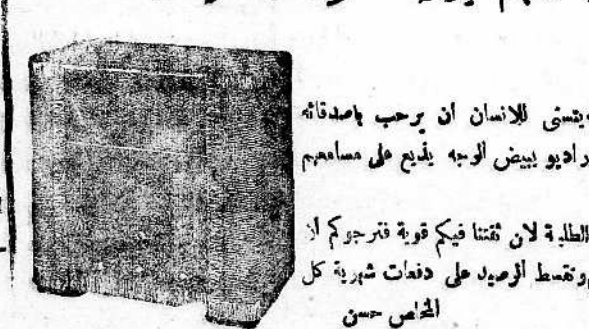 ويتسنى للانسان أن يرحب باصدقائه
راديو يبيض الوجه يذيع على مسامعهم
الطلبة لان ثقتنا فيكم قوية فنرجوكم أن
ونقسط الرصيد على دفعات شهرية كل
المخلص حسن